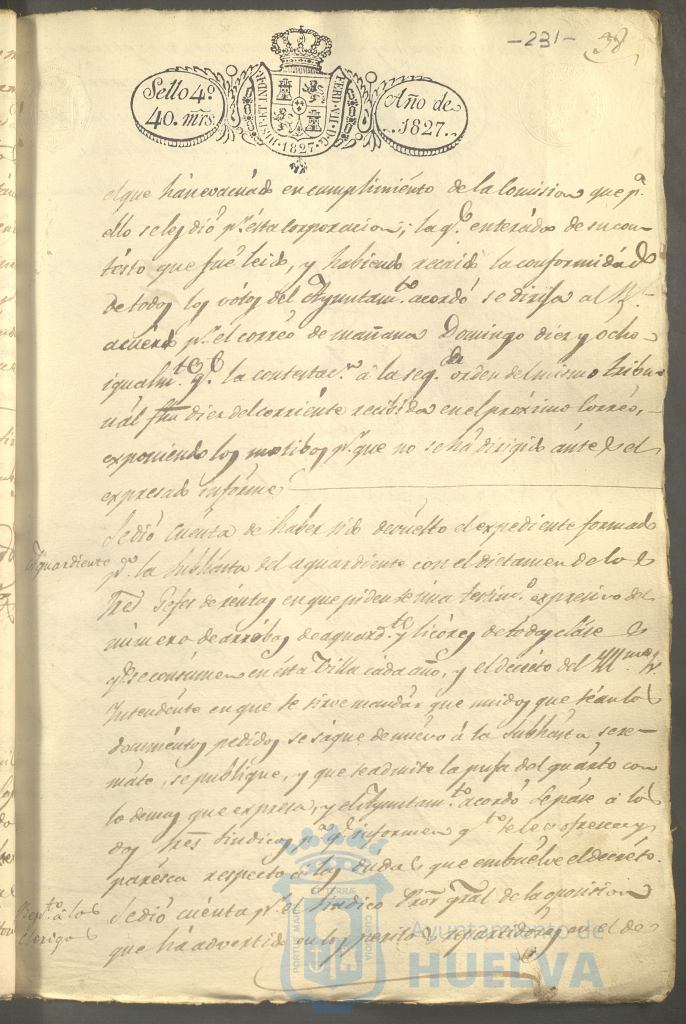 -231- 38,
Sello 4º.
40. mrs.
HISP. ET IND. R.
FERD. VII. D. G.
1827.
Año de
1827.
el que han evacuado en cumplimiento de la Comision que pª.
ello se les dió pr. esta Corporacion; la qe. enterada de su con-
testo que fué leido, y habiendo recaido la conformidad
de todos los votos del Ayuntamto. acordó se dirija al Rl.
acuerdo pr. el correo de mañana Domingo diez y ocho
igualmte. qe. la contestacn. á la segda. orden del mismo tribu-
nál fha diez del corriente recibida en el próximo Correo,
exponiendo los motibos pr. que no se há dirigido ántes el
expresado informe
Se dió cuenta de haber sido devuelto el expediente formado
Aguardiente
pª. la subhasta del aguardiente con el dictamen de los
Tres Gefes de rentas en que piden se una testimº. expresivo del
número de arrobas de aguardte. y licores de todas clases
qe. se consúmen en ésta Villa cada año, y el decreto del
Intendénte en que se sirve mandár que unidos que séan los
documéntos pedidos se sáque de nuevo á la subhasta se re-
máte, se publique, y que se admite la puja del quárto con
lo demas que expresa, y el Ayuntamto. acordó se páse á los
dos Tres Sindicos pª. qe. informen qto. se les ofresca y
paresca respecto á las dudas que embuelve el decréto.
Repto. á los
Clerigos
Se dió cuénta pr. el Sindico Pror. gral. de la oposicion
que há advertido en los peritos repartidores en el de
PORTUS MARIS ET TERRAE CUSTODIA
Ayuntamiento de
HUELVA